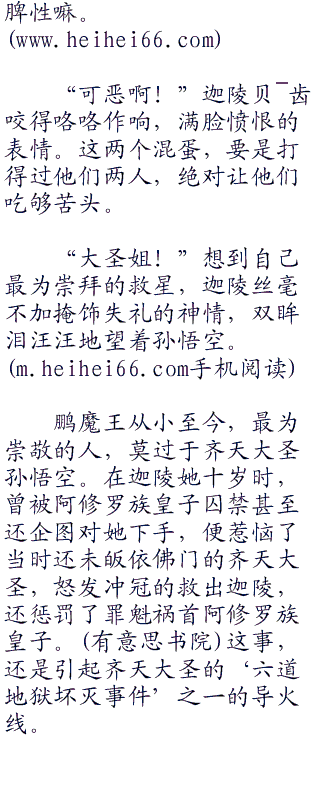 脾性嘛。
(www.heihei66.com)
“可恶啊！”迦陵贝¯齿
咬得咯咯作响，满脸愤恨的
表情。这两个混蛋，要是打
得过他们两人，绝对让他们
吃够苦头。
“大圣姐！”想到自己
最为崇拜的救星，迦陵丝毫
不加掩饰失礼的神情，双眸
泪汪汪地望着孙悟空。
(m.heihei66.com手机阅读)
鹏魔王从小至今，最为
崇敬的人，莫过于齐天大圣
孙悟空。在迦陵她十岁时，
曾被阿修罗族皇子囚禁甚至
还企图对她下手，便惹恼了
当时还未皈依佛门的齐天大
圣，怒发冲冠的救出迦陵，
还惩罚了罪魁祸首阿修罗族
皇子。(有意思书院)这事，
还是引起齐天大圣的‘六道
地狱坏灭事件’之一的导火
线。